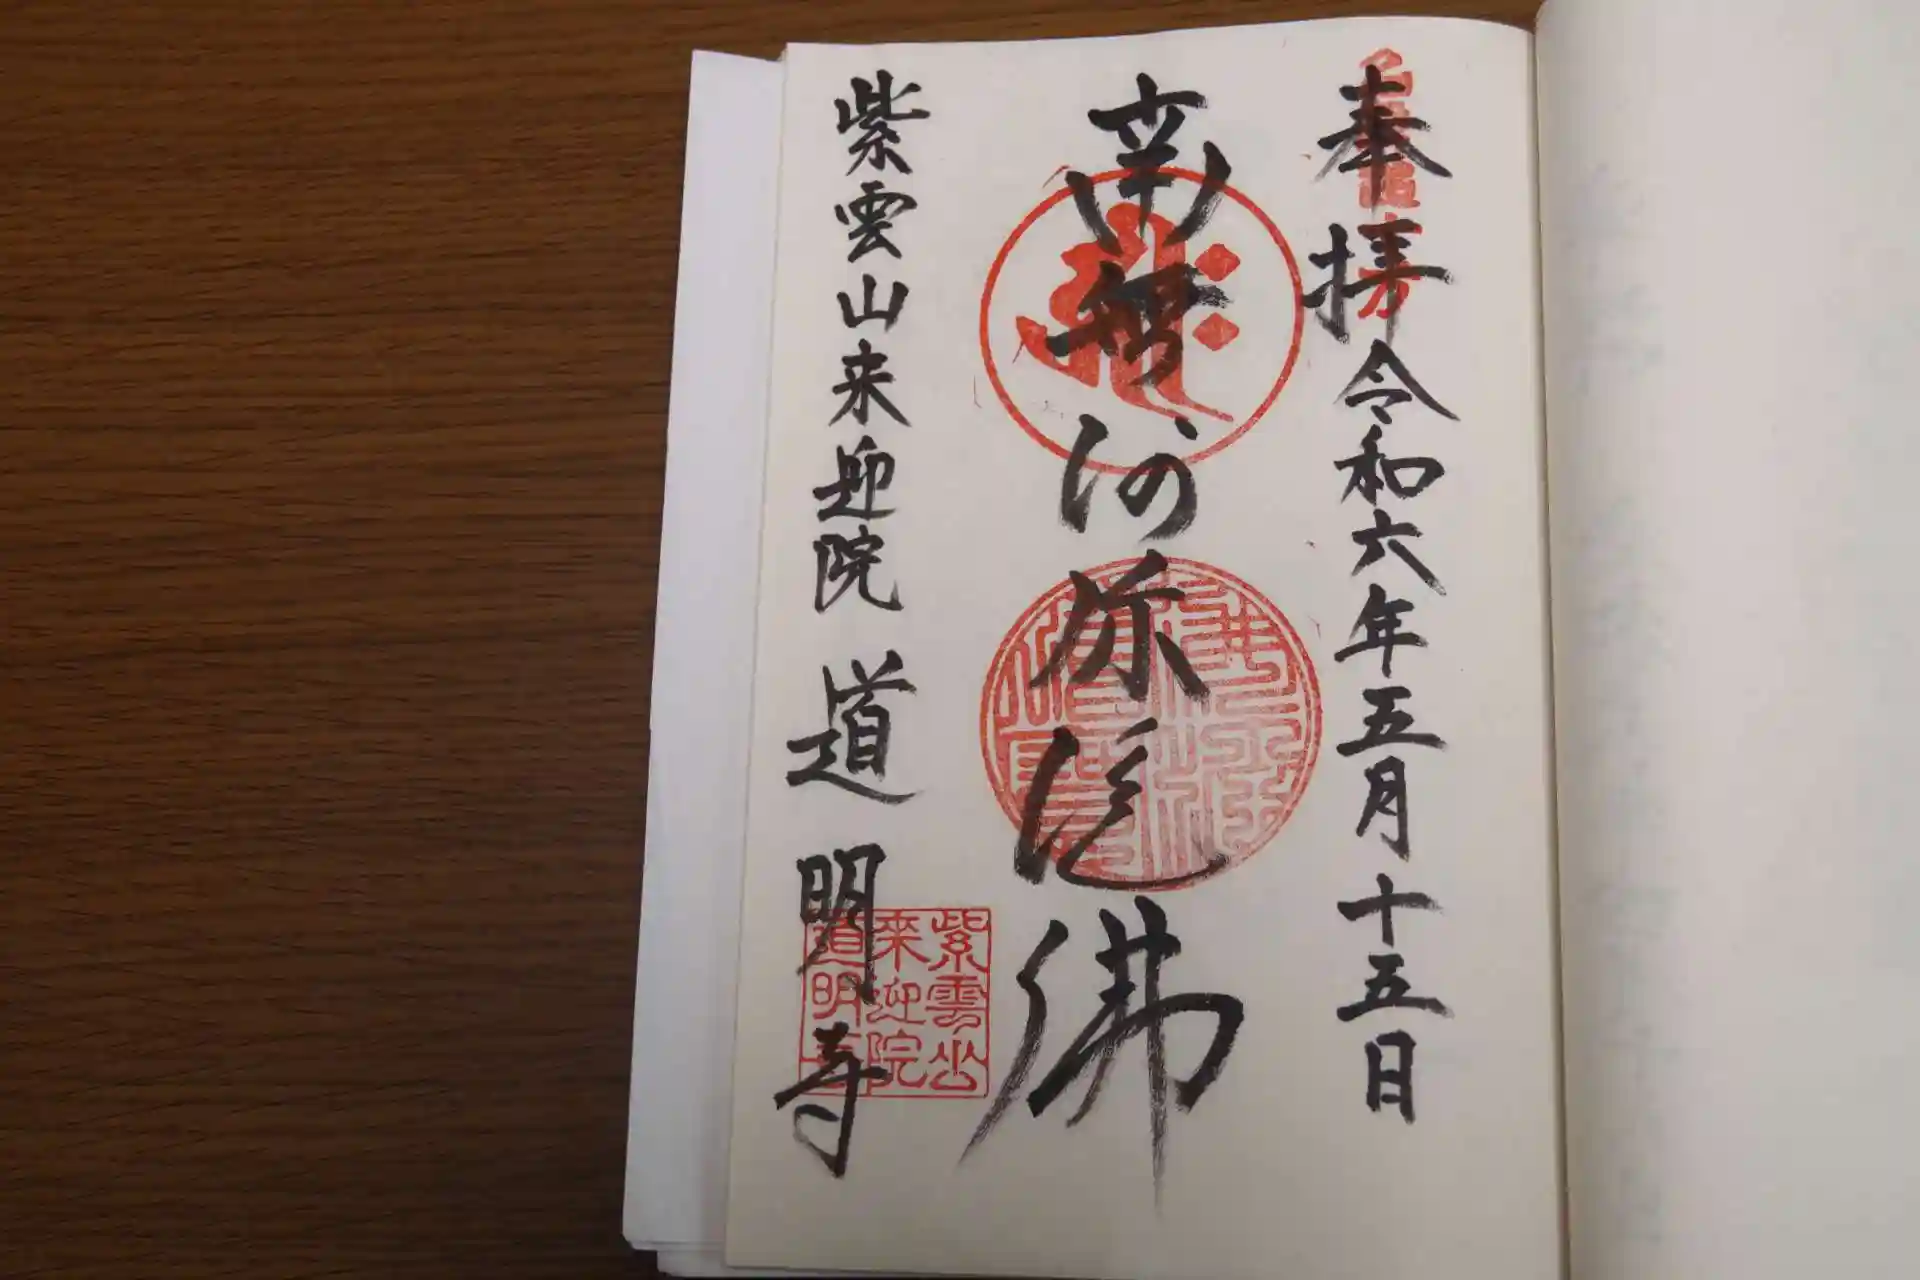 奉拝 令和六年五月十五日
南無阿弥陀佛
紫雲山来迎院 道明寺
紫雲山
来迎院
道明寺